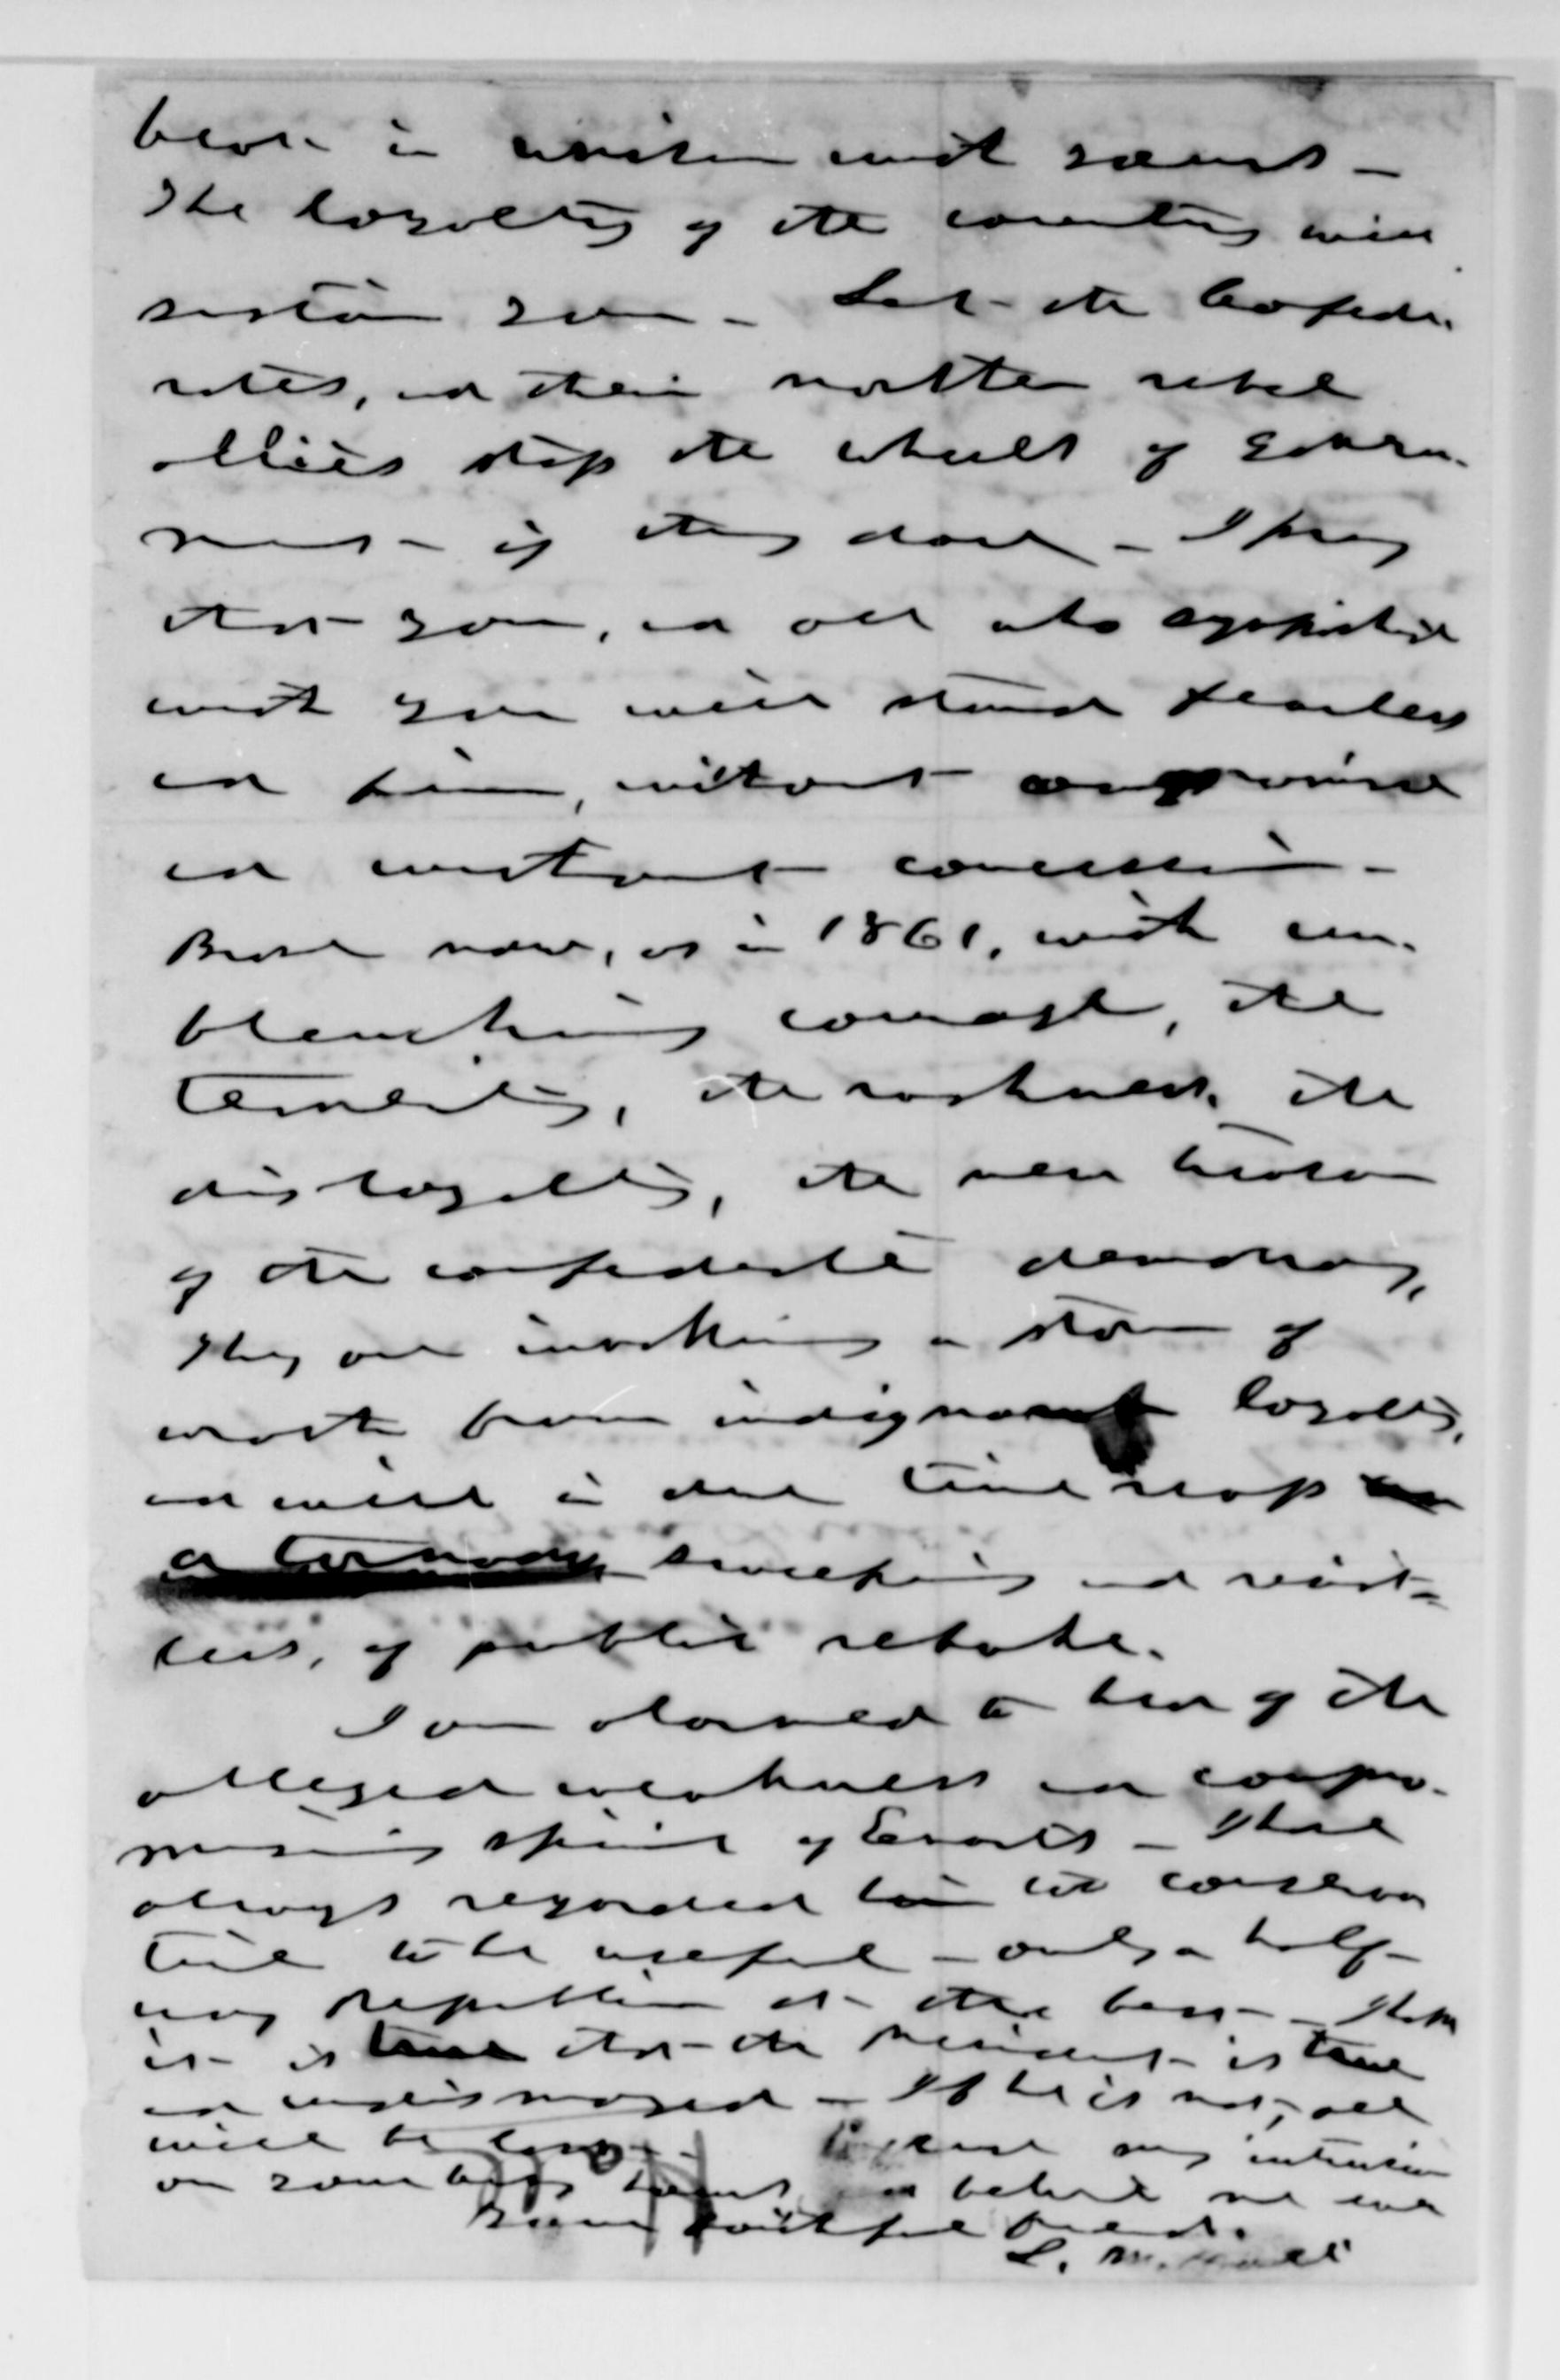 beats in unison with yours —
The loyalty of the country will
sustain you — Let the Confede-
rates, and their northern rebel
allies stop the wheels of govern-
ment — if they dare — I pray
that you, and all who sympathize
with you will stand fearless
and firm, without compromise
and without concession —
Brave now, as in 1861, with un-
blenching courage, the
temerity, the rashness, the
disloyalty, the new treason
of the confederate democracy,
They are invoking a storm of
wrath from indignant loyalty,
and will in due time reap
a tornado sweeping and resist-
less, of public rebuke.
I am alarmed to hear of the
alleged weakness and compro-
mising spirit of Evarts — I have
always regarded him too conserva
tive to be useful — only a half-
way Republican at the best — I hope
it is true that the President is true
and undismayed — If he is not, all
will be lost — Excuse my intrusion
on your busy hours, and believe me ever
Your faithful friend.
L. M.